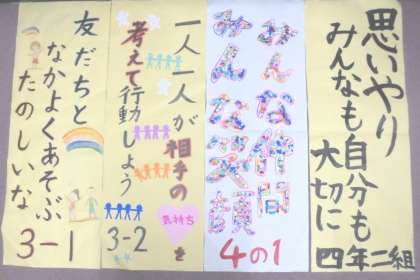 思いやり
みんなも自分も
大切に
四年二組
みんな仲間
みんな笑顔
4の1
一人一人が相手の気持ちを
考えて行動しよう
3-2
友だちと
なかよくあそぶ
たのしいな
3-1